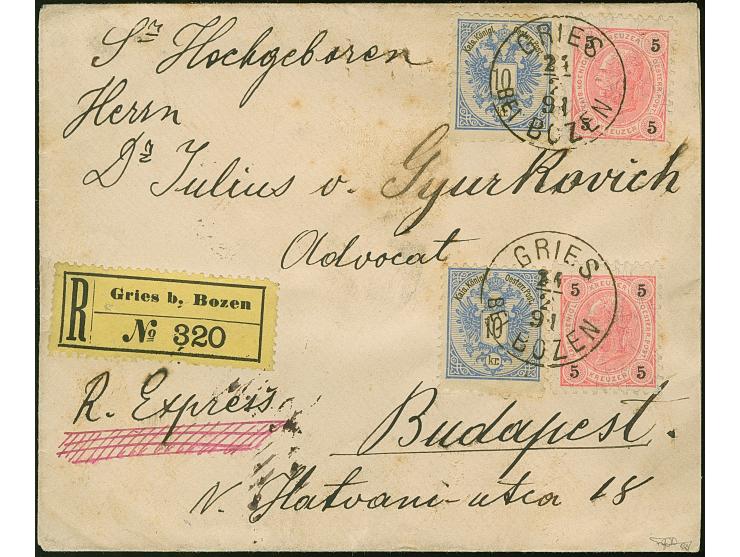 Sr Hochgeboren
Herrn
Dr Julius v. Gyurkovich
Advocat
R. Express
Budapest.
v. Hatvani-utca 18
R Gries b. Bozen
No 320
Kais. Königl. Oesterr. Post
10
5 5
KREUZER
5 5
GRIES
21
2
91
BEI BOZEN
Kais. Königl. Oesterr. Post
10
kr.
5 5
KREUZER
5 5
GRIES
21
2
91
BEI BOZEN